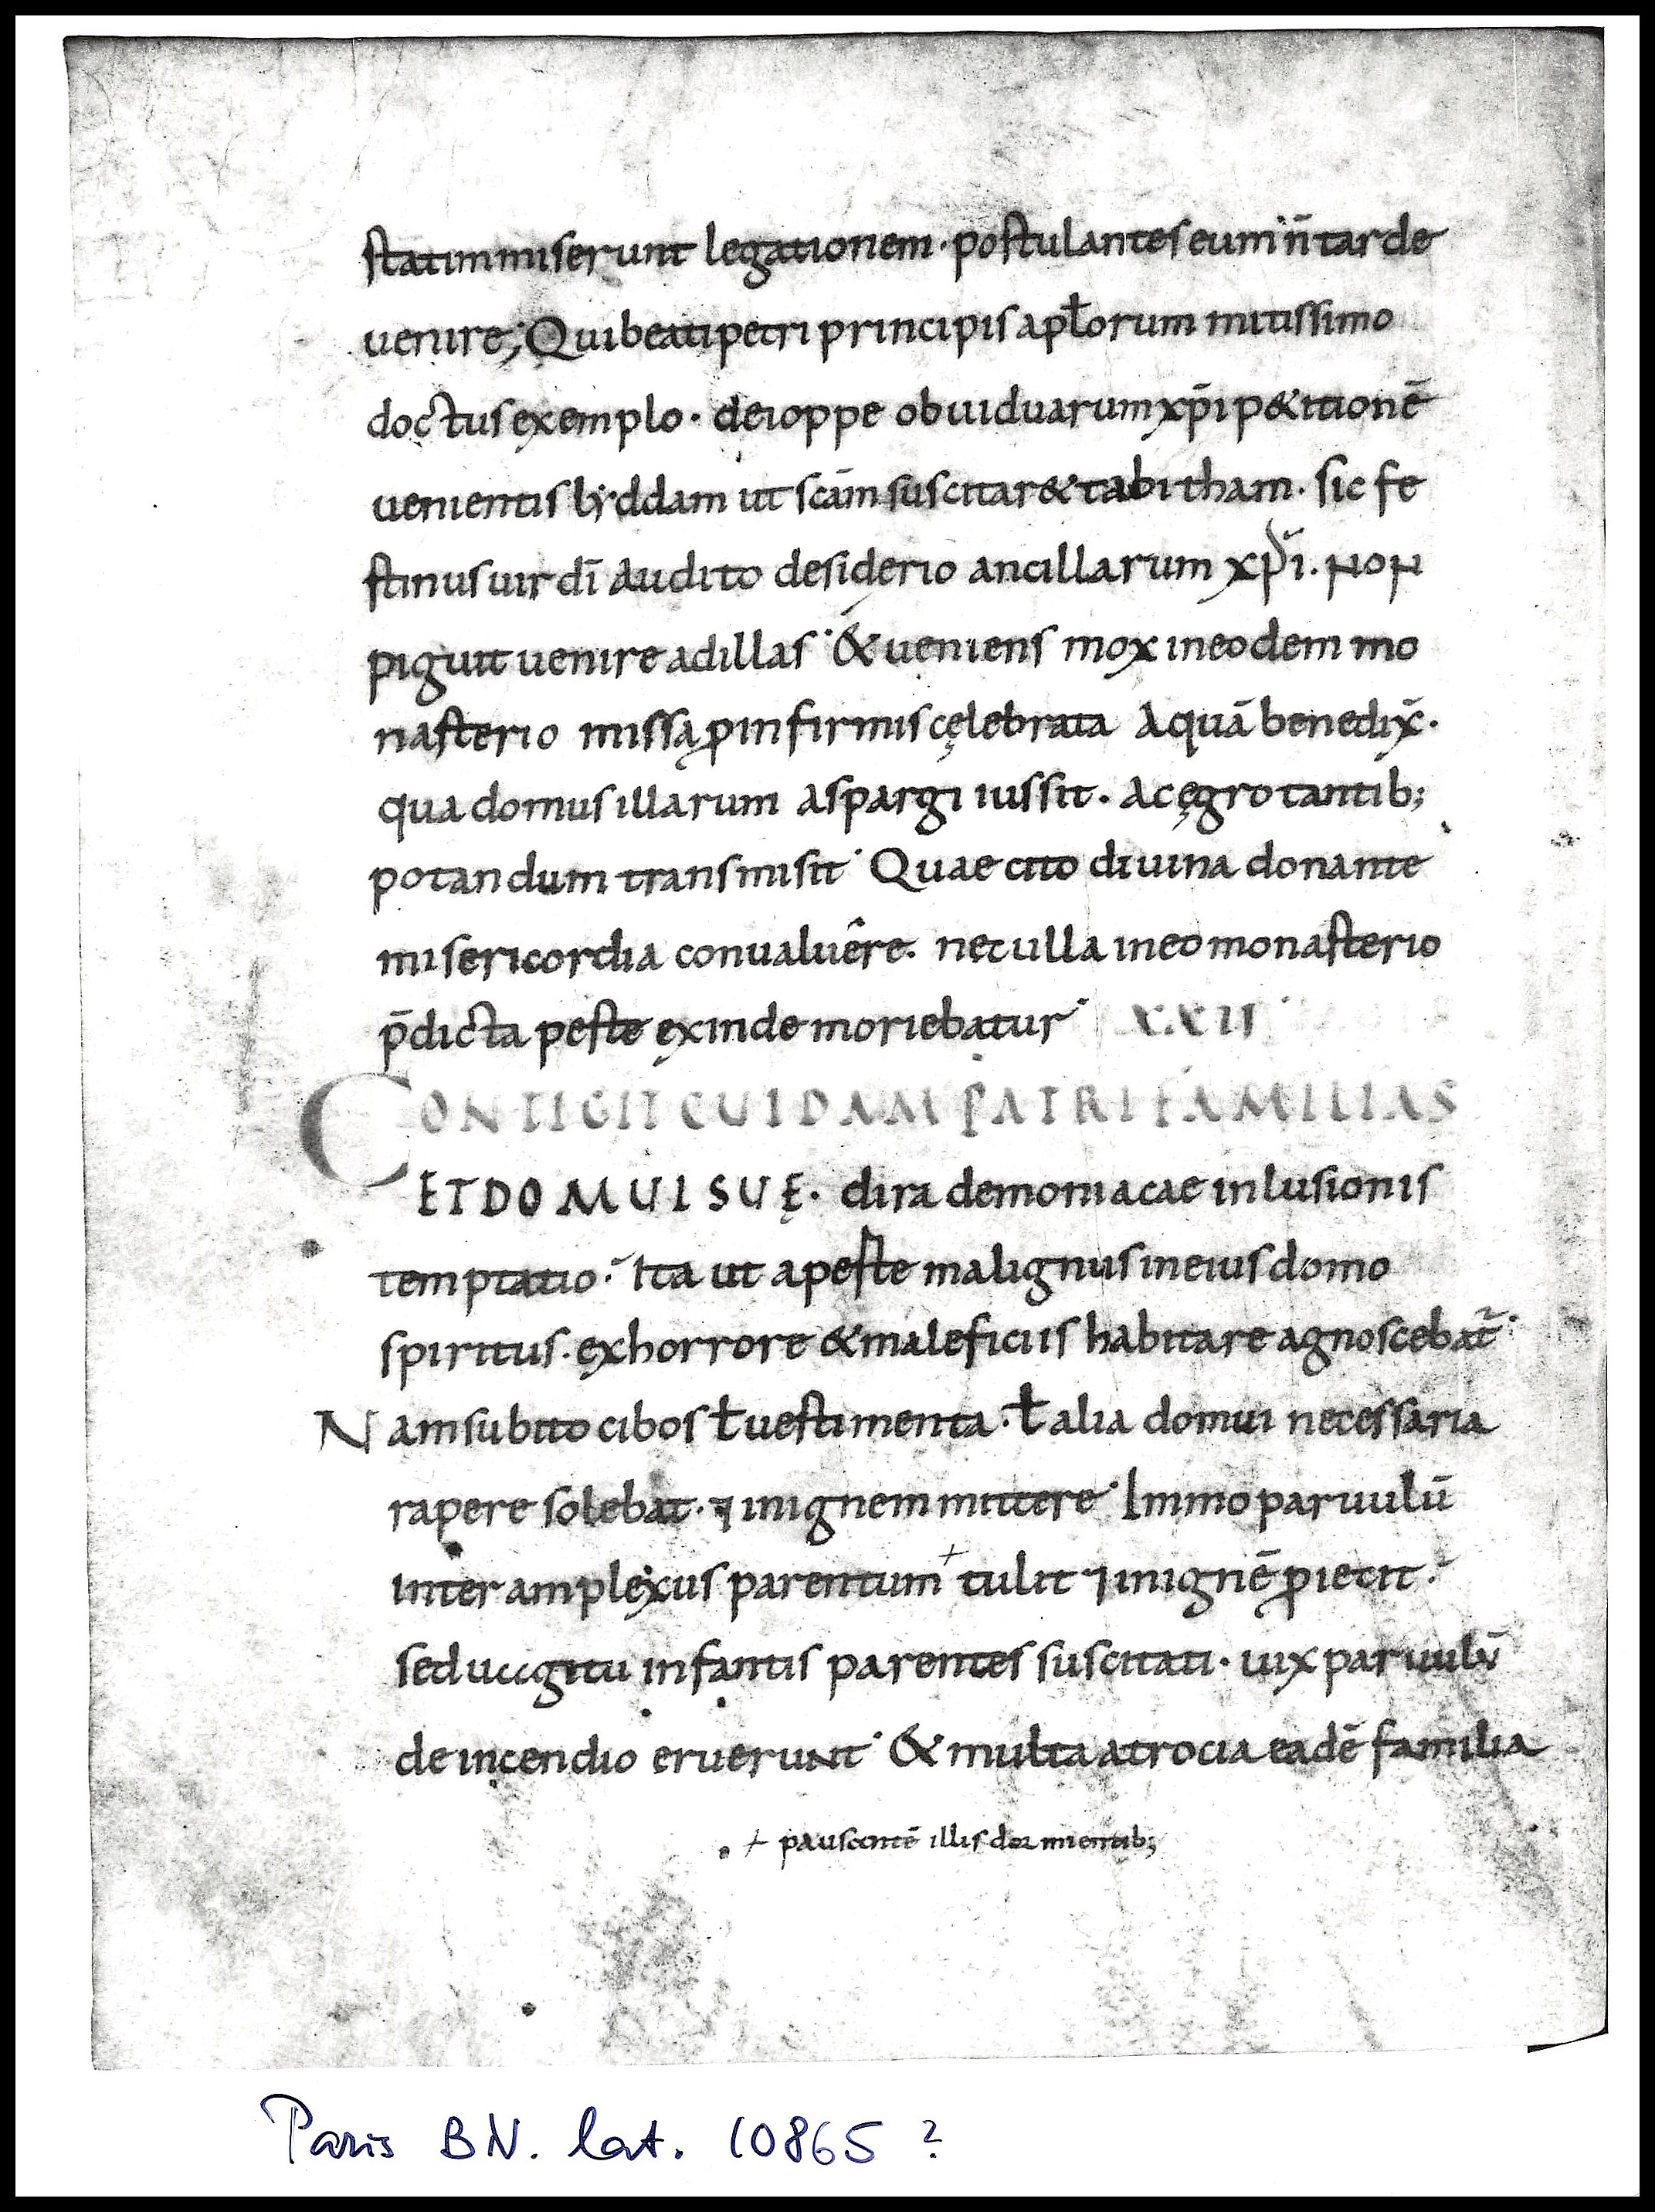 statim miserunt legationem · postulantes eum n̄ tarde
uenire; Qui beati petri principis aplorum mitissimo
doctus exemplo · de ioppe ob uiduarum xp̄i p&itionē
uenientis lyddam ut scām suscitar& tabitham · sic fe
stinus uir dī audito desiderio ancillarum xp̄i. NON
piguit uenire ad illas · & ueniens mox in eodem mo
nasterio missa ꝓ infirmis cęlebrata Aquā benedix̄ ·
qua domus illarum aspargi iussit · Ac ęgrotantib;
potandum transmisit · Quae cito diuina donante
misericordia conualuêre. nec ulla in eo monasterio
p̄dicta peste exinde moriebatur · XXII ·
CONTIGIT CUIDAM PATRI FAMILIAS
ET DOMUI SUĘ · dira demoniacae inlusionis
temptatio · Ita ut a peste malignus in eius domo
spiritus. ex horrore & maleficiis habitare agnoscebat᷑ ·
Nam subito cibos ł uestimenta · ł alia domui necessaria
rapere solebat · ⁊ in ignem mittere · Immo paruulū
inter amplexus parentum + tulit ⁊ in ignē ꝓiecit ·
sed uagitu infantis parentes suscitati · uix paruulū
de incendio eruerunt · & multa atrocia eadē familia
+ pausantē illis dormientib;
Paris BN. lat. 10865 ?